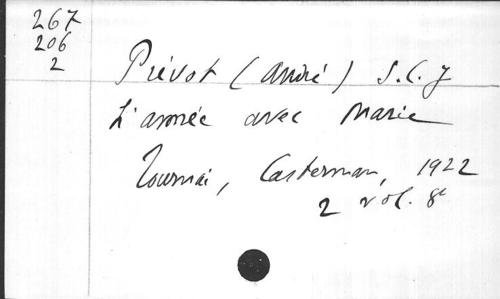 267
206
2
Prévot (André) S.C.J
L'année avec Marie
Tournai, Casterman, 1922
2 vol. 8°